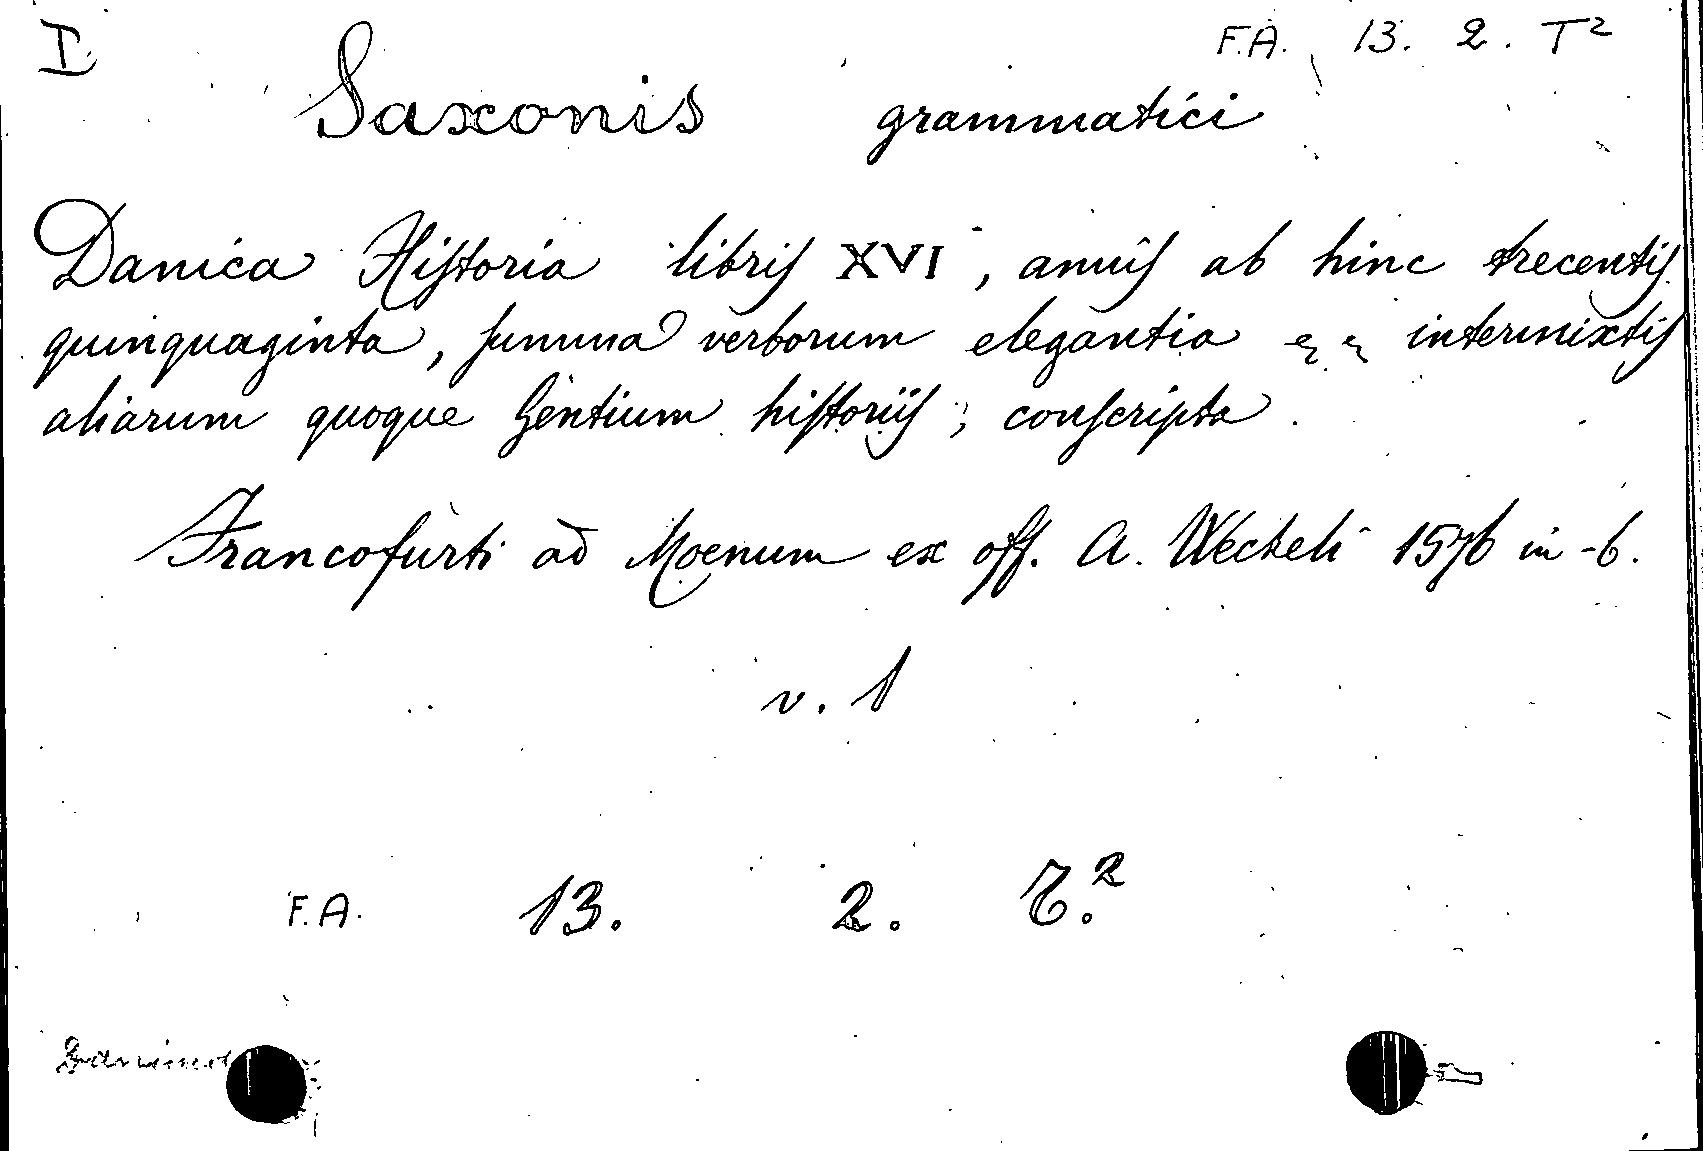 I. F.A. 13. 2. T²
Saxonis grammatici
Danica Hiſtoria libriſ XVI, anniſ ab hinc trecentiſ
quinquaginta, ſumma verborum elegantia intermixtiſ
aliarum quoque Gentium hiſtoriiſ, conſcripta.
Francofurti ad Moenum ex off. A. Wecheli 1576 in -6.
v. 1
F.A. 13. 2. T.²